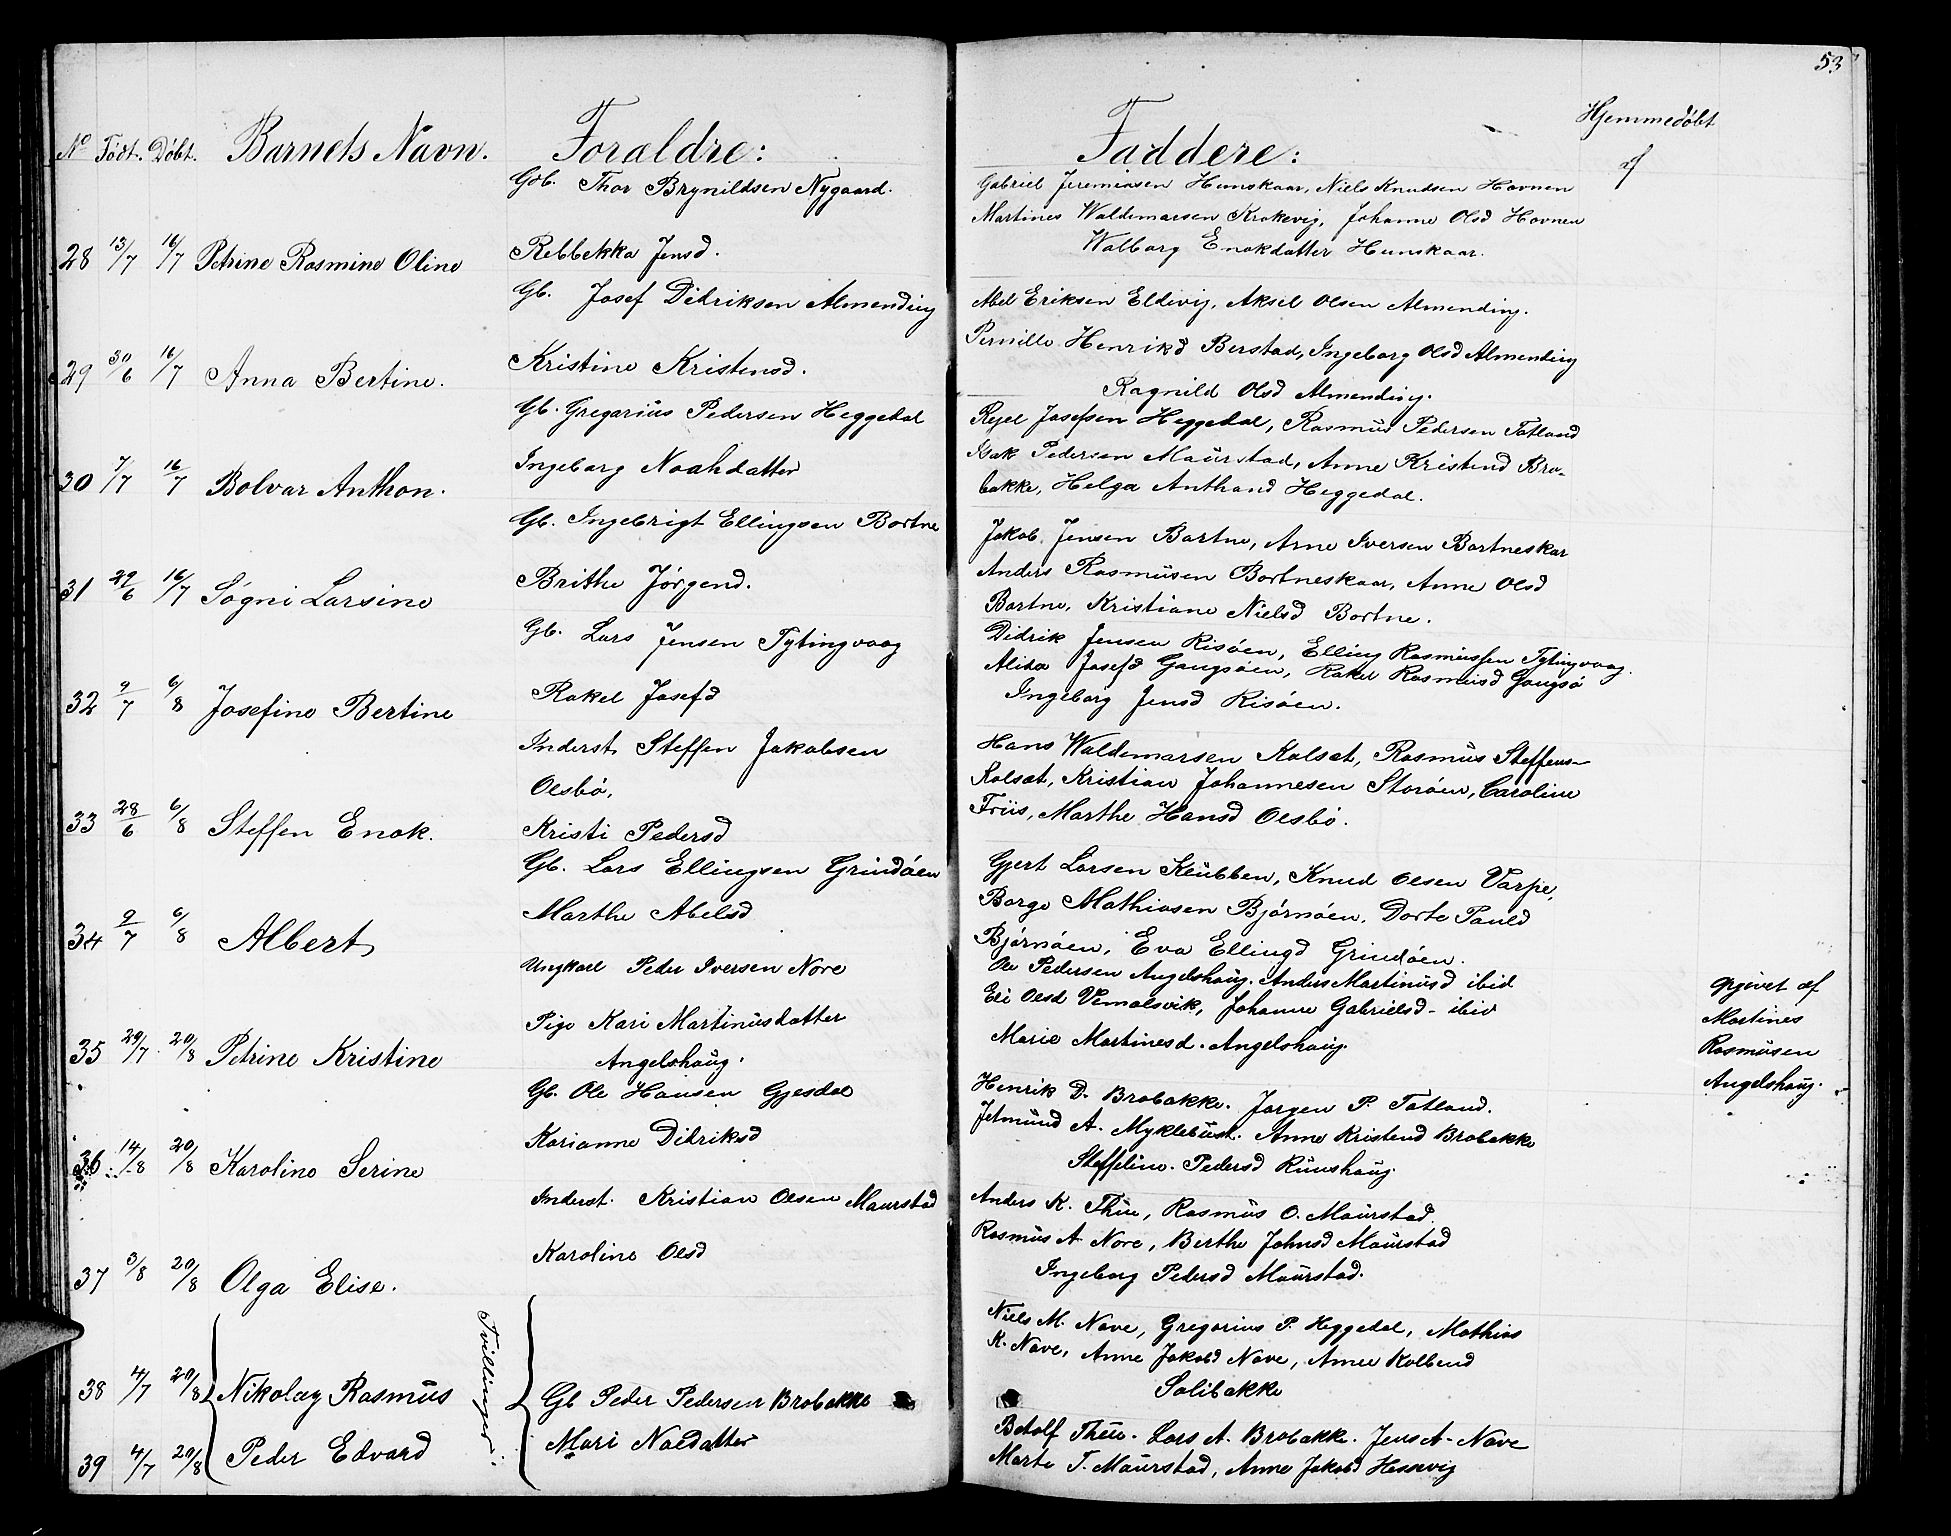 53
No Født. Døbt. Barnets Navn. Foraldre: Faddere: Hjemmedøbt
af
Gdb. Thor Brynildsen Nygaard.
28 13/7 16/7 Petrine Rasmine Oline Rebbekka Jensd.
Gabriel Jeremiasen Hunskaar, Niels Knudsen Havnen
Martines Waldemarsen Krokevig, Johanne Olsd Havnen
Walborg Enokdatter Hunskaar.
Gb. Josef Didriksen Almending
29 30/6 16/7 Anna Bertine. Kristine Kristensd.
Abel Eriksen Eldevig, Aksel Olsen Almending.
Pernille Henriksd Berstad, Ingeborg Olsd Almending
Ragnild Olsd Almending.
Gb. Gregarius Pedersen Heggedal
30 7/7 16/7 Bolvar Anthon. Ingeborg Noahdatter
Josefsen Heggedal, Rasmus Pedersen Totland
Isak Pedersen Maurstad, Anne Kristensd Bro-
bakke, Helga Anthansd Heggedal.
Gb. Ingebrigt Ellingsen Bortne
31 29/6 16/7 Søgni Larsine Brithe Jørgensd.
Jakob Jensen Bortne, Arne Iversen Bortneskar
Anders Rasmusen Bortneskaar, Anne Olsd
Bortne, Kristiane Nielsd Bortne.
Gb. Lars Jensen Tytingvaag
32 9/7 6/8 Josefine Bertine Rakel Josefd
Didrik Jensen Risøen, Elling Rasmussen Tytingvaag.
Alida Josefd Gangsøen, Rakel Rasmusd Gangsø
Ingeborg Jensd Risøen.
Inderst Steffen Jakobsen
Oesbø,
33 28/6 6/8 Steffen Enok. Kristi Pedersd
Hans Waldemarsen Kalsæt, Rasmus Steffens-
Kalsæt, Kristian Johannesen Storøen, Caroline
Friis, Marthe Hansd Oesbø.
Gb. Lars Ellingsen Grindøen
34 9/7 6/8 Albert Marthe Abelsd
Gjert Larsen Klubben, Knud Olsen Varpe,
Borge Mathiasen Bjørnøen, Dorte Paulsd
Bjørnøen, Eva Ellingd Grindøen.
Ungkarl Peder Iversen Nore
Pige Kari Martinusdatter
35 29/7 20/8 Petrine Kristine Angelshaug.
Ole Pedersen Angelshaug. Anders Martinusd ibid
Eli Olsd Vemelsvik, Johanne Gabrielsd - ibid
Marie Martinesd. Angelshaug.
opgivet af
Martines
Rasmusen
Angelshaug.
Gb. Ole Hansen Gjesdal
36 14/8 20/8 Karoline Serine Karianne Didriksd
Henrik D. Brobakke. Jørgen P. Totland.
Jetmund A. Myklebust. Anne Kristensd Brobakke
Steffeline. Pedersd Ruushaug.
Inderst. Kristian Olsen Maurstad
37 3/8 20/8 Olga Elise. Karoline Olsd
Anders K. Thue, Rasmus O. Maurstad
Rasmus A Nore, Berthe Johnsd Maurstad
Ingeborg Pedersd Maurstad.
Tvillinger.
38 4/7 20/8 Nikolay Rasmus Gb Peder Pedersen Brobakke
Niels M. Nave, Gregorius P. Heggedal, Mathias
K. Nave, Anne Jakobd Nave, Anne Kolbensd
Solibakke
39 4/7 20/8 Peder Edvard Mari Noedatter
Botolf Thue. Lars A. Brobakke. Jens A. Nave
Marte T. Maurstad, Anne Jakobd Hessevig